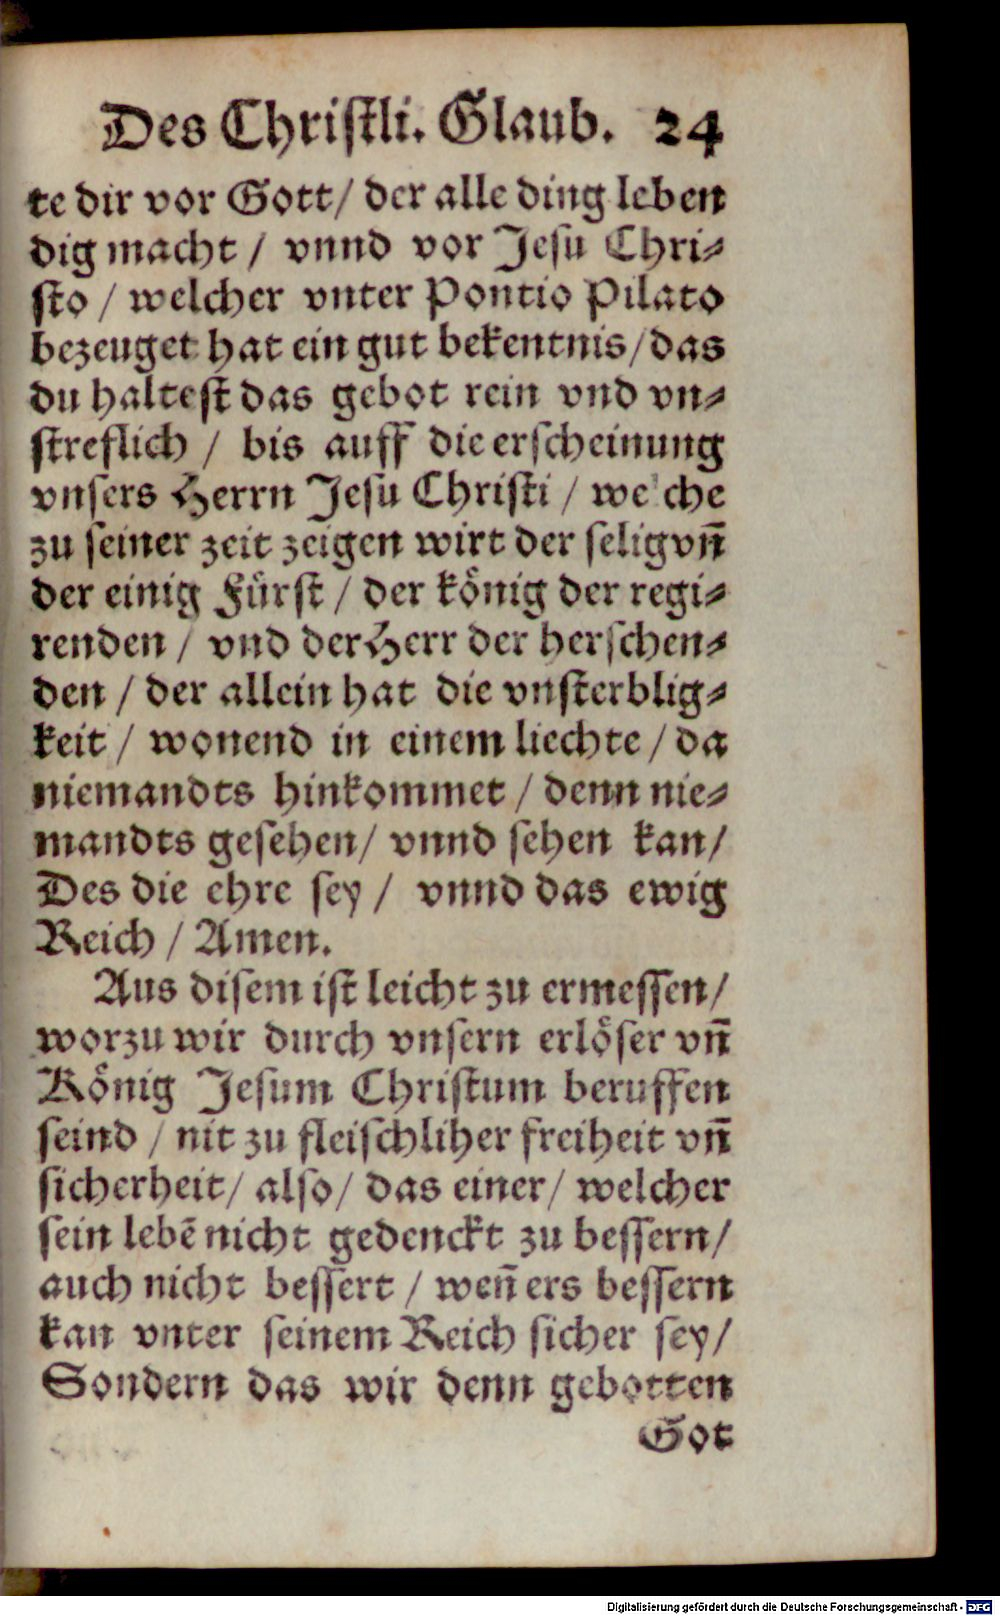 Des Christli. Glaub. 24
te dir vor Gott/ der alle ding leben
dig macht / vnnd vor Jesu Chri⸗
sto / welcher vnter Pontio Pilato
bezeuget hat ein gut bekentnis/das
du haltest das gebot rein vnd vn⸗
streflich / bis auff die erscheinung
vnsers Herrn Jesu Christi / we che
zu seiner zeit zeigen wirt der selig vñ
der einig Fürst / der könig der regi⸗
renden / vnd der Herr der herschen⸗
den / der allein hat die vnsterblig⸗
keit / wonend in einem liechte / da
niemandts hinkommet / denn nie⸗
mandts gesehen/ vnnd sehen kan/
Des die ehre sey / vnnd das ewig
Reich / Amen.
Aus disem ist leicht zu ermessen/
worzu wir durch vnsern erlöser vñ
König Jesum Christum beruffen
seind / nit zu fleischliher freiheit vñ
sicherheit/ also/ das einer/ welcher
sein lebē nicht gedenckt zu bessern/
auch nicht bessert / weñ ers bessern
kan vnter seinem Reich sicher sey/
Sondern das wir denn gebotten
Got
Digitalisierung gefördert durch die Deutsche Forschungsgemeinschaft - DFG